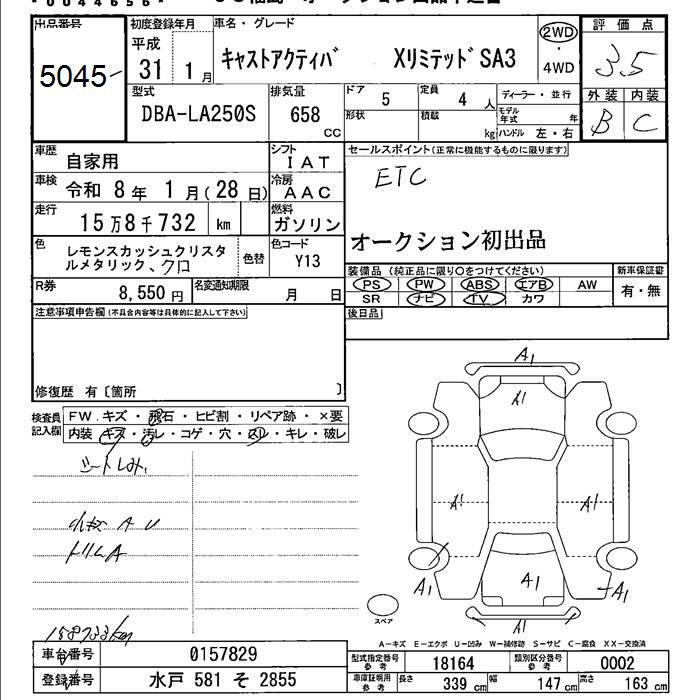 出品番号 初度登録年月 車名・グレード 評価点
5045
平成 31年 1月
キャストアクティバ XリミテッドSA3
2WD・4WD
3.5
外装 内装
B C
型式 DBA-LA250S
排気量 658 CC
ドア 5
定員 4 人
形状 積載 kg
ディーラー・並行
モデル年式 年
ハンドル 左・右
車歴 自家用
シフト IAT
セールスポイント(正常に機能するものに限ります)
ETC
オークション初出品
車検 令和 8年 1月(28日)
冷房 AAC
走行 15万8千732 km
燃料 ガソリン
色 レモンスカッシュクリスタ
ルメタリック、クロ
色替
色コード Y13
R券 8,550円
名変通知期限 月 日
装備品(純正品に限り○をつけてください)
PS PW ABS エアB AW
SR ナビ TV カワ
新車保証書
有・無
注意事項申告欄(不具合内容等は具体的に記入して下さい)
後日品
修復歴 有〔箇所 〕
検査員記入欄
FW.キズ・飛石・ヒビ割・リペア跡・×要
内装 キズ・汚レ・コゲ・穴・スレ・キレ・破レ
シートしみ
小キズ A U
トリムA
158733km
A1
A1
A1 A1
A1 A1 A1
A1
スペア
A-キズ E-エクボ U-凹み W-補修跡 S-サビ C-腐食 XX-交換済
車台番号 0157829
型式指定番号 参考 18164
類別区分番号 参考 0002
登録番号 水戸 581 そ 2855
車庫証明用 参考 長さ 339cm 幅 147cm 高さ 163cm